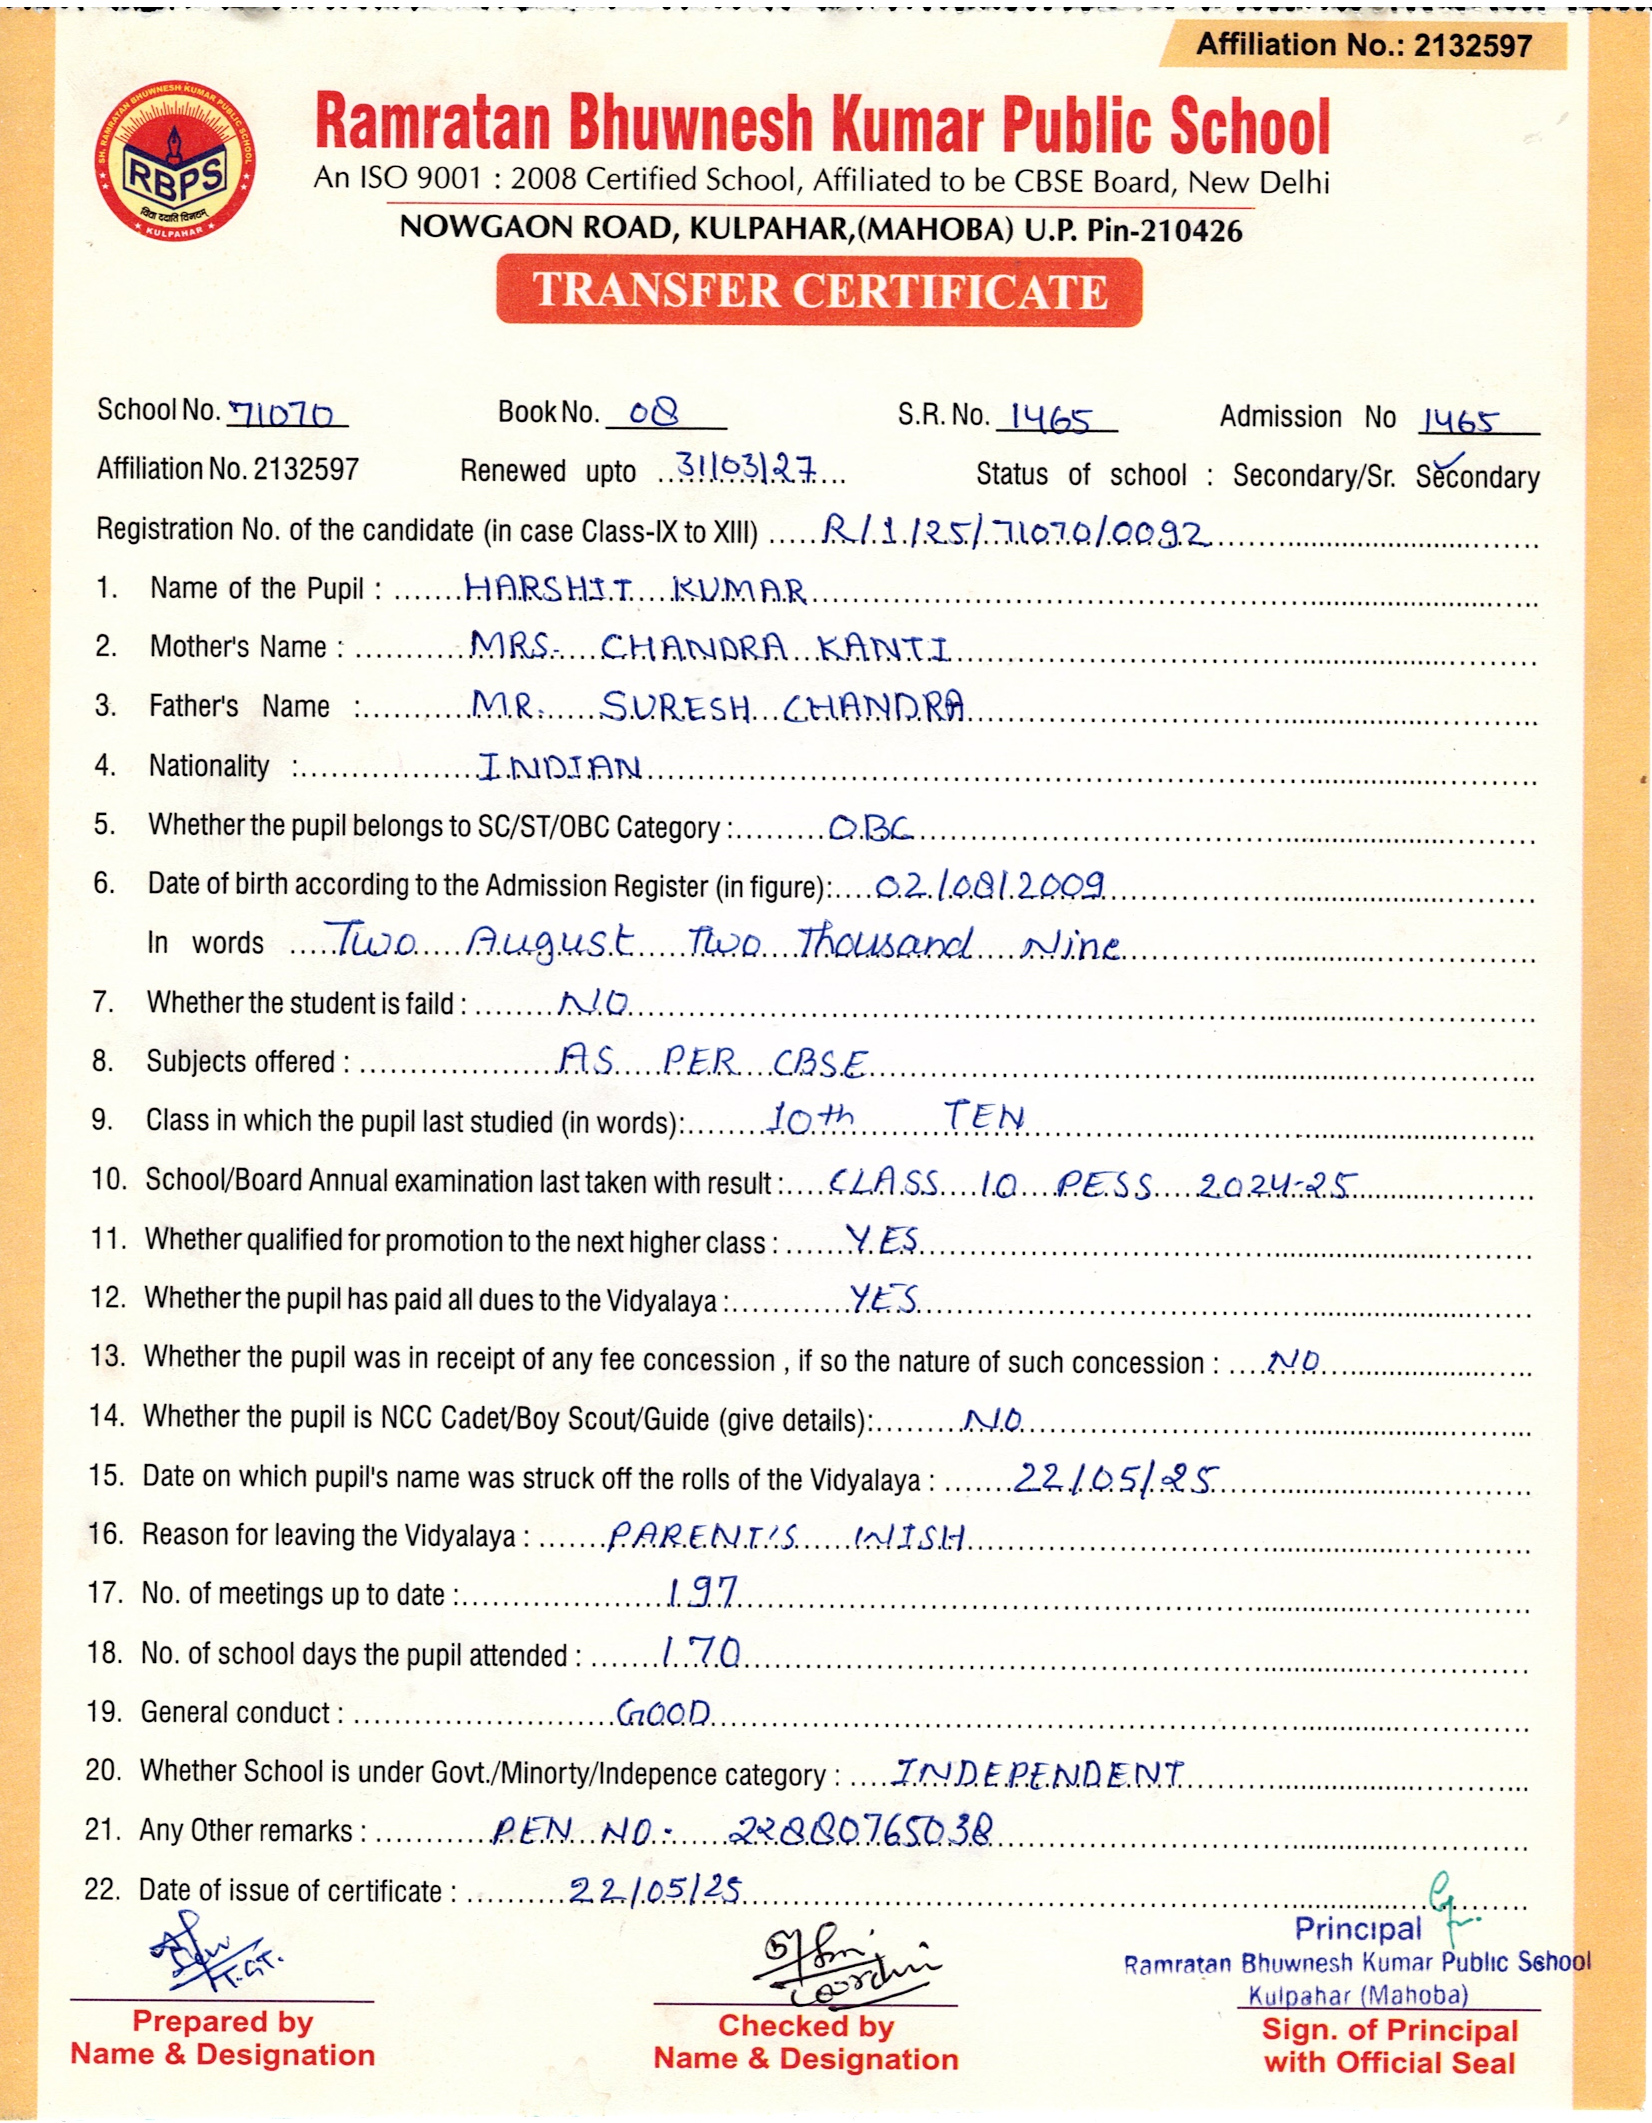 Affiliation No.: 2132597
SH. RAMRATAN BHUWNESH KUMAR PUBLIC SCHOOL
RBPS
विद्या ददाति विनयम्
★ KULPAHAR ★
Ramratan Bhuwnesh Kumar Public School
An ISO 9001 : 2008 Certified School, Affiliated to be CBSE Board, New Delhi
NOWGAON ROAD, KULPAHAR,(MAHOBA) U.P. Pin-210426
TRANSFER CERTIFICATE
School No. 71070 Book No. 08 S.R. No. 1465 Admission No 1465
Affiliation No. 2132597 Renewed upto 31/03/27 Status of school : Secondary/Sr. Secondary
Registration No. of the candidate (in case Class-IX to XIII) R/1/25/71070/0092
1. Name of the Pupil : HARSHIT KUMAR
2. Mother's Name : MRS. CHANDRA KANTI
3. Father's Name : MR. SURESH CHANDRA
4. Nationality : INDIAN
5. Whether the pupil belongs to SC/ST/OBC Category : OBC
6. Date of birth according to the Admission Register (in figure): 02/08/2009
In words Two August Two Thousand Nine
7. Whether the student is faild : NO
8. Subjects offered : AS PER CBSE
9. Class in which the pupil last studied (in words): 10th TEN
10. School/Board Annual examination last taken with result : CLASS 10 PESS 2024-25
11. Whether qualified for promotion to the next higher class : YES
12. Whether the pupil has paid all dues to the Vidyalaya : YES
13. Whether the pupil was in receipt of any fee concession , if so the nature of such concession : NO
14. Whether the pupil is NCC Cadet/Boy Scout/Guide (give details): NO
15. Date on which pupil's name was struck off the rolls of the Vidyalaya : 22/05/25
16. Reason for leaving the Vidyalaya : PARENT'S WISH
17. No. of meetings up to date : 197
18. No. of school days the pupil attended : 170
19. General conduct : GOOD
20. Whether School is under Govt./Minorty/Indepence category : INDEPENDENT
21. Any Other remarks : PEN NO. 22880765038
22. Date of issue of certificate : 22/05/25
T.G.T.
Principal
Ramratan Bhuwnesh Kumar Public School
Kulpahar (Mahoba)
Prepared by
Name & Designation
Checked by
Name & Designation
Sign. of Principal
with Official Seal